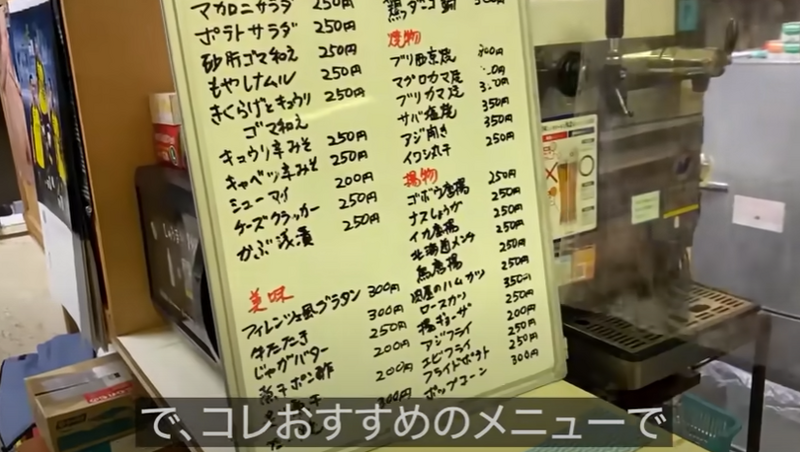 マカロニサラダ 250円
ポテトサラダ 250円
砂肝ゴマ和え 250円
もやしナムル 250円
きくらげとキュウリ 250円
ゴマ和え
キュウリ辛みそ 250円
キャベツ辛みそ 250円
シューマイ 200円
チーズクラッカー 250円
かぶ浅漬 250円
美味
フィレンツェ風グラタン 300円
牛たたき 300円
じゃがバター 250円
煮干ポン酢 200円
200円
焼物
ブリ西京焼
マグロカマ焼
ブリカマ焼
サバ塩焼 350円
アジ開き 350円
イワシ丸干 250円
揚物
ゴボウ唐揚 250円
ナスしょうが 250円
イカ唐揚 250円
北海道メンチ 250円
鳥唐揚 250円
肉屋のハムカツ 250円
ロースカツ 350円
揚ギョーザ 250円
アジフライ 200円
エビフライ 250円
フライドポテト 250円
ポップコーン 300円
で、コレおすすめのメニューで